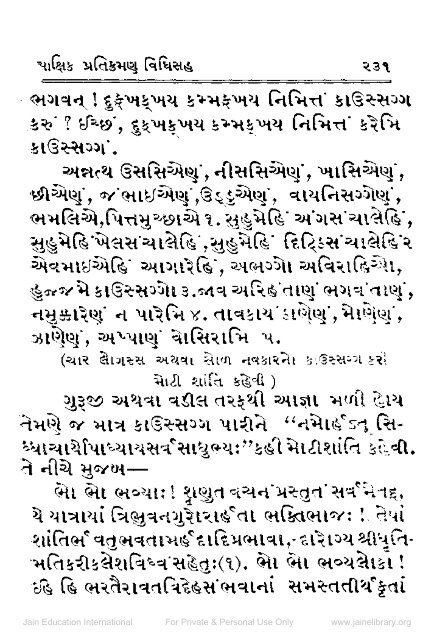 પાક્ષિક પ્રતિક્રમણ વિધિસહ ૨૩૧
ભગવન્ ! દુક્ખક્ખય કમ્મક્ખય નિમિત્તં કાઉસ્સગ્ગ
કરું ? ઈચ્છં, દુક્ખક્ખય કમ્મક્ખય નિમિત્તં કરેમિ
કાઉસ્સગ્ગં.
અન્નત્થ ઉસસિએણં, નીસસિએણં, ખાસિએણં,
છીએણં, જંભાઇએણં,ઉડ્ડુએણં, વાયનિસગ્ગેણં,
ભમલિએ,પિત્તમુચ્છાએ ૧. સુહુમેહિં અંગસંચાલેહિં,
સુહુમેહિં ખેલસંચાલેહિં,સુહુમેહિં દિટ્ઠિસંચાલેહિં૨
એવમાઇએહિં આગારેહિં, અભગ્ગો અવિરાહિઓ,
હુજ્જ મે કાઉસ્સગ્ગો ૩.જાવ અરિહંતાણં ભગવંતાણં,
નમુક્કારેણં ન પારેમિ ૪. તાવકાયં ઠાણેણં, મોણેણં,
ઝાણેણં, અપ્પાણં વોસિરામિ ૫.
(ચાર લોગસ્સ અથવા સોળ નવકારનો કાઉસ્સગ્ગ કરી
મોટી શાંતિ કહેવી )
ગુરૂજી અથવા વડીલ તરફથી આજ્ઞા મળી હોય
તેમણે જ માત્ર કાઉસ્સગ્ગ પારીને “નમોર્હત્ સિ-
દ્ધાચાર્યોપાધ્યાયસર્વસાધુભ્યઃ”કહી મોટીશાંતિ કહેવી.
તે નીચે મુજબ—
ભો ભો ભવ્યાઃ! શૃણુત વચનં પ્રસ્તુતં સર્વમેતદ્,
યે યાત્રાયાં ત્રિભુવનગુરોરાર્હતા ભક્તિભાજઃ ! તેષાં
શાંતિર્ભવતુ ભવતામર્હદાદિપ્રભાવા,-દારોગ્ય શ્રીધૃતિ-
મતિકરીક્લેશવિધ્વંસહેતુઃ(૧). ભો ભો ભવ્યલોકા!
ઇહ હિ ભરતૈરાવતવિદેહસંભવાનાં સમસ્તતીર્થકૃતાં
Jain Education International For Private & Personal Use Only www.jainelibrary.org